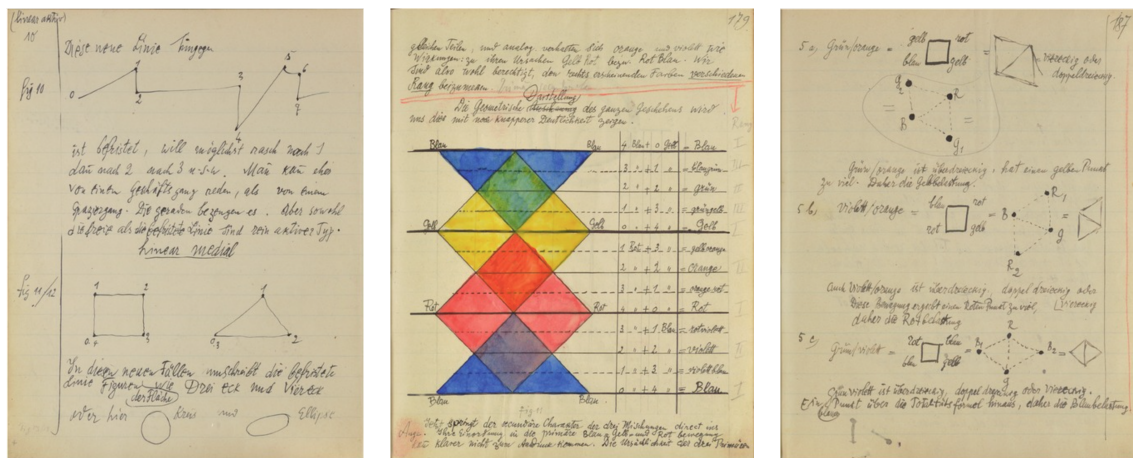 (linear aktiv)
10
Diese neue Linie hingegen
Fig 10
0 1 2 3 4 5 6 7
ist befristet, will möglichst rasch nach 1
dann nach 2 nach 3 u.s.w. Man kan eher
von einem Geschäftsgang reden, als von einem
Spaziergang. Die geraden bezeugen es. Aber sowohl
die freie als die befristete Linie sind rein aktiver Typ.
Linear medial
Fig 11/12
1 2
0.4 3
1
2
In diesen neuen Fällen umschreibt die befristete
Linie Figuren wie Drei eck und Viereck
oder hier Kreis und Ellipse
179
gleichen Teilen, und analog verhalten sich orange und violett wie
Wirkungen zu ihren Ursachen Gelb Rot bezw. Rot Blau. Wir
sind also wohl berechtigt, den rechts erscheinenden Farben verschiedenen
Rang beizumessen
Darstellung
Die Geometrische des ganzen Geschehens wird
uns dies mit noch knapperer Deutlichkeit zeigen.
Rang
Blau Blau 4 Blau + 0 Gelb = Blau I
3 " + 1 " = blaugrün III
2 " + 2 " = grün II
1 " + 3 " = grüngelb III
Gelb Gelb 0 " + 4 " = Gelb I
1 Rot + 3 " = gelborange
2 " + 2 " = orange II
3 " + 1 " = orange-rot
Rot Rot 4 " + 0 " = Rot I
3 " + 1 Blau = rotviolett
2 " + 2 " = violett II
1 " + 3 " = violettblau
Blau Blau 0 " + 4 " = Blau I
springt der secundäre Charakter der drei Mischungen direkt ins
Auge. Ihre Einordnung in die primäre Blau Gelb und Rot bewegung
klarer nicht zum Ausdruck kommen. Die Ursächlichkeit der drei Primären
187
5 a) Grün/orange = gelb rot
blau gelb
= viereckig oder
doppeldreieckig.
g2 R
B g1
Grün/orange ist überdreieckig. hat einen gelben Punct
zu viel. Daher die Gelbbelastung.
5 b) violett/orange = blau rot
rot gelb
= B R1 g R2 =
auch violett/orange ist überdreieckig. doppel dreieckig oder
Diese Bewegung ergibt einen Roten Punct zu viel, (viereckig
daher die Rotbelastung
5 c) Grün/violett = rot blau
blau gelb
= B1 R B2 g =
Grün violett ist überdreieckig, doppel dreieckig oder viereckig.
Ein blauer Punct über die Totalitätsformel hinaus, daher die Blaubelastung.